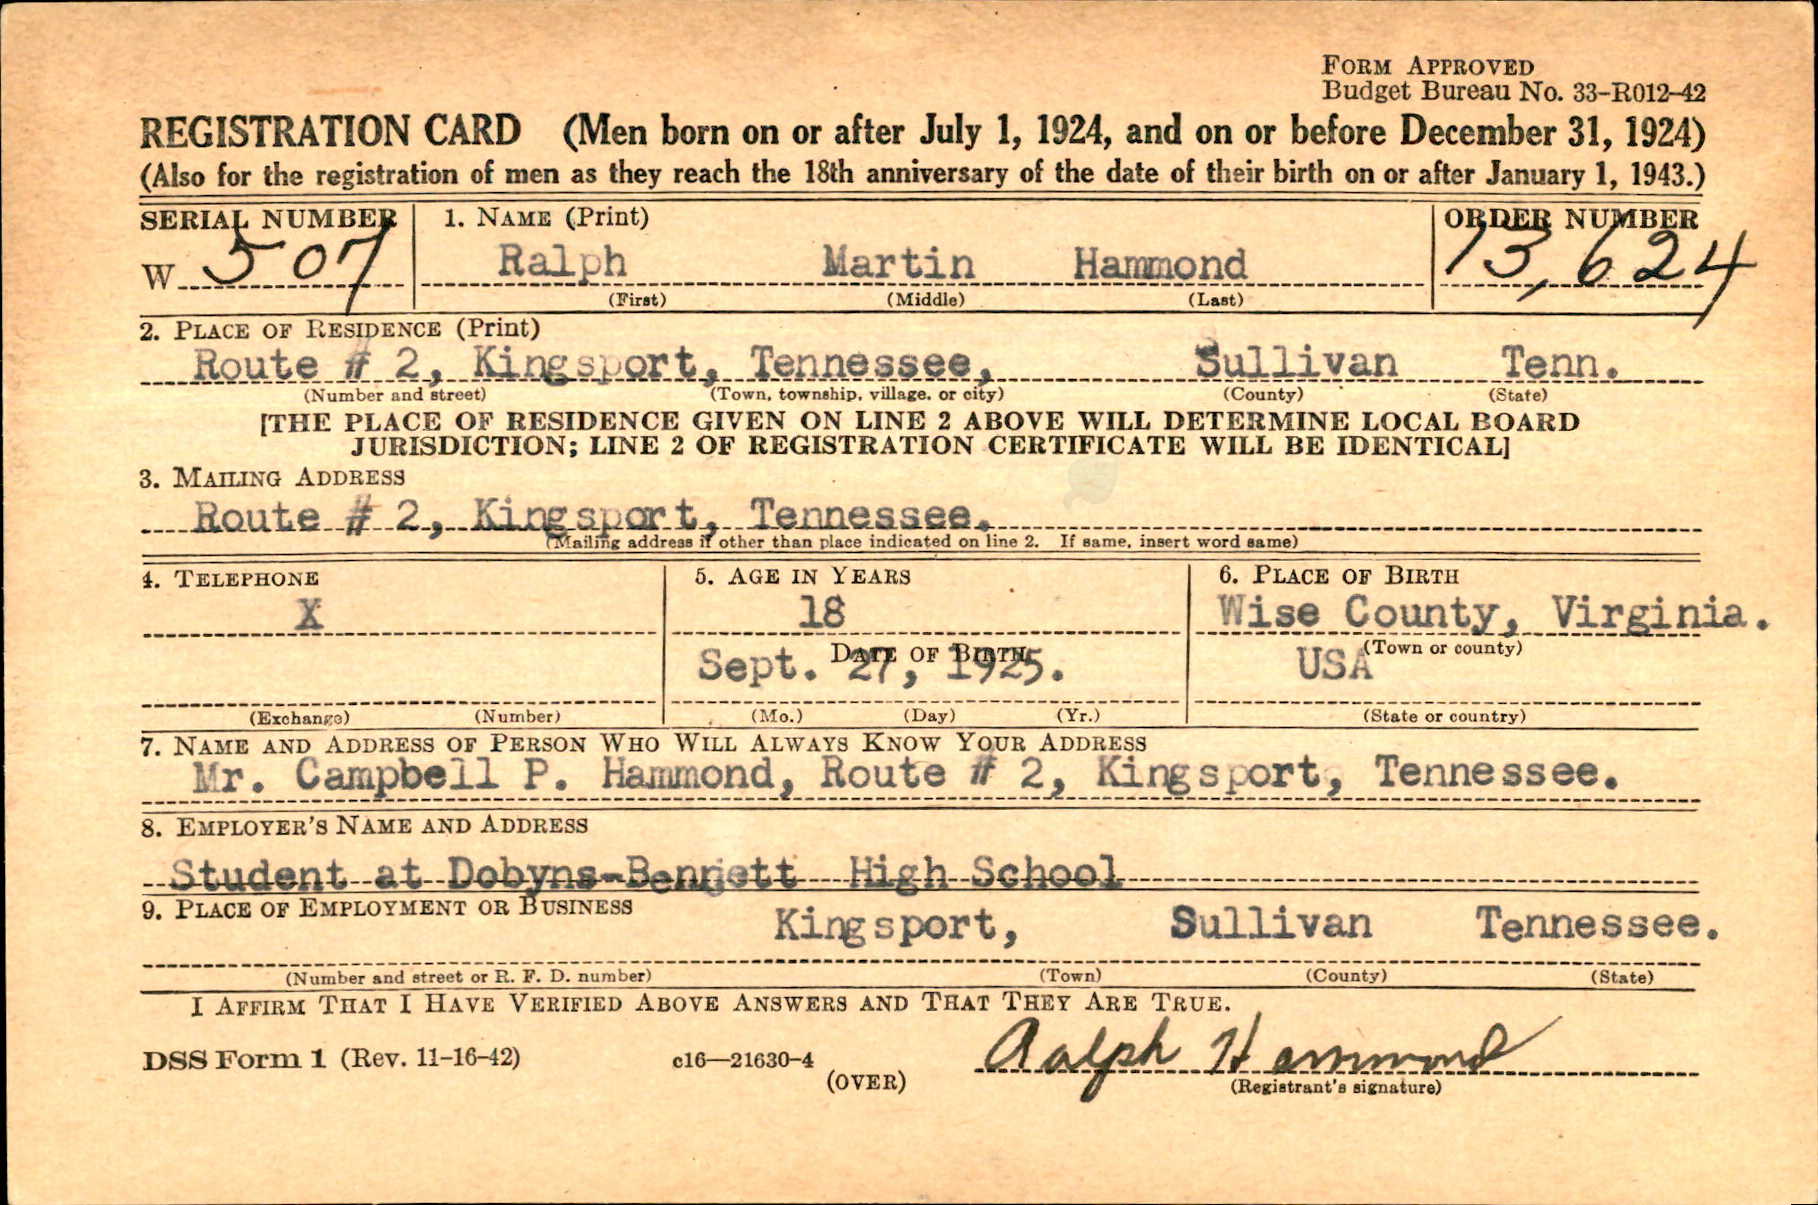 FORM APPROVED
Budget Bureau No. 33-R012-42
REGISTRATION CARD (Men born on or after July 1, 1924, and on or before December 31, 1924)
(Also for the registration of men as they reach the 18th anniversary of the date of their birth on or after January 1, 1943.)
SERIAL NUMBER 1. NAME (Print) ORDER NUMBER
W 507 Ralph Martin Hammond 13,624
(First) (Middle) (Last)
2. PLACE OF RESIDENCE (Print)
Route # 2, Kingsport, Tennessee, Sullivan Tenn.
(Number and street) (Town, township, village, or city) (County) (State)
[THE PLACE OF RESIDENCE GIVEN ON LINE 2 ABOVE WILL DETERMINE LOCAL BOARD
JURISDICTION; LINE 2 OF REGISTRATION CERTIFICATE WILL BE IDENTICAL]
3. MAILING ADDRESS
Route # 2, Kingsport, Tennessee.
(Mailing address if other than place indicated on line 2. If same, insert word same)
4. TELEPHONE 5. AGE IN YEARS 6. PLACE OF BIRTH
X 18 Wise County, Virginia.
DATE OF BIRTH (Town or county)
Sept. 27, 1925. USA
(Exchange) (Number) (Mo.) (Day) (Yr.) (State or country)
7. NAME AND ADDRESS OF PERSON WHO WILL ALWAYS KNOW YOUR ADDRESS
Mr. Campbell P. Hammond, Route # 2, Kingsport, Tennessee.
8. EMPLOYER'S NAME AND ADDRESS
Student at Dobyns-Bennett High School
9. PLACE OF EMPLOYMENT OR BUSINESS
Kingsport, Sullivan Tennessee.
(Number and street or R. F. D. number) (Town) (County) (State)
I AFFIRM THAT I HAVE VERIFIED ABOVE ANSWERS AND THAT THEY ARE TRUE.
DSS Form 1 (Rev. 11-16-42) c16—21630-4 Ralph Hammond
(OVER) (Registrant's signature)